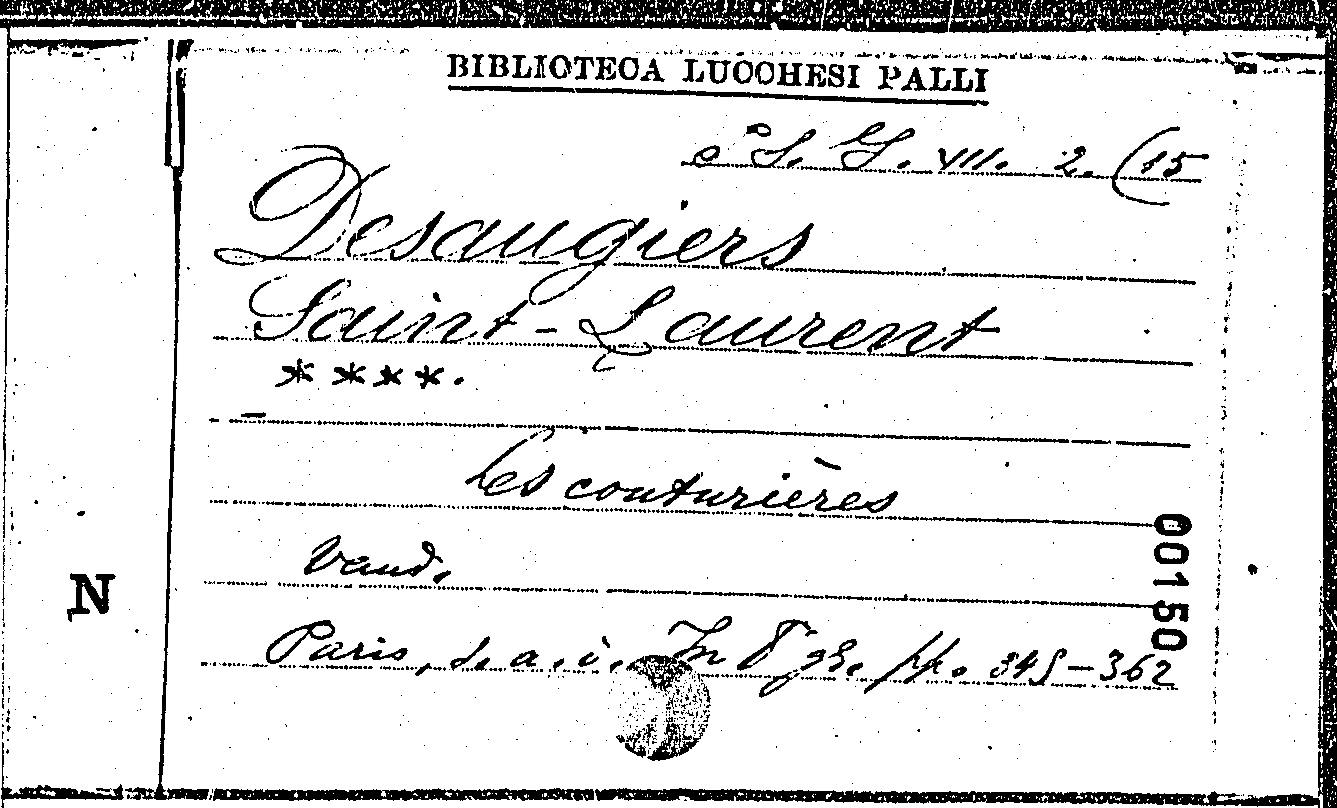 BIBLIOTECA LUCCHESI PALLI
L. VII. 2. (15
Desaugiers
Saint-Laurent
****.
Les couturières
Vaud.
Paris, s. a. i. In 8° gr. pp. 345-362
N
00150